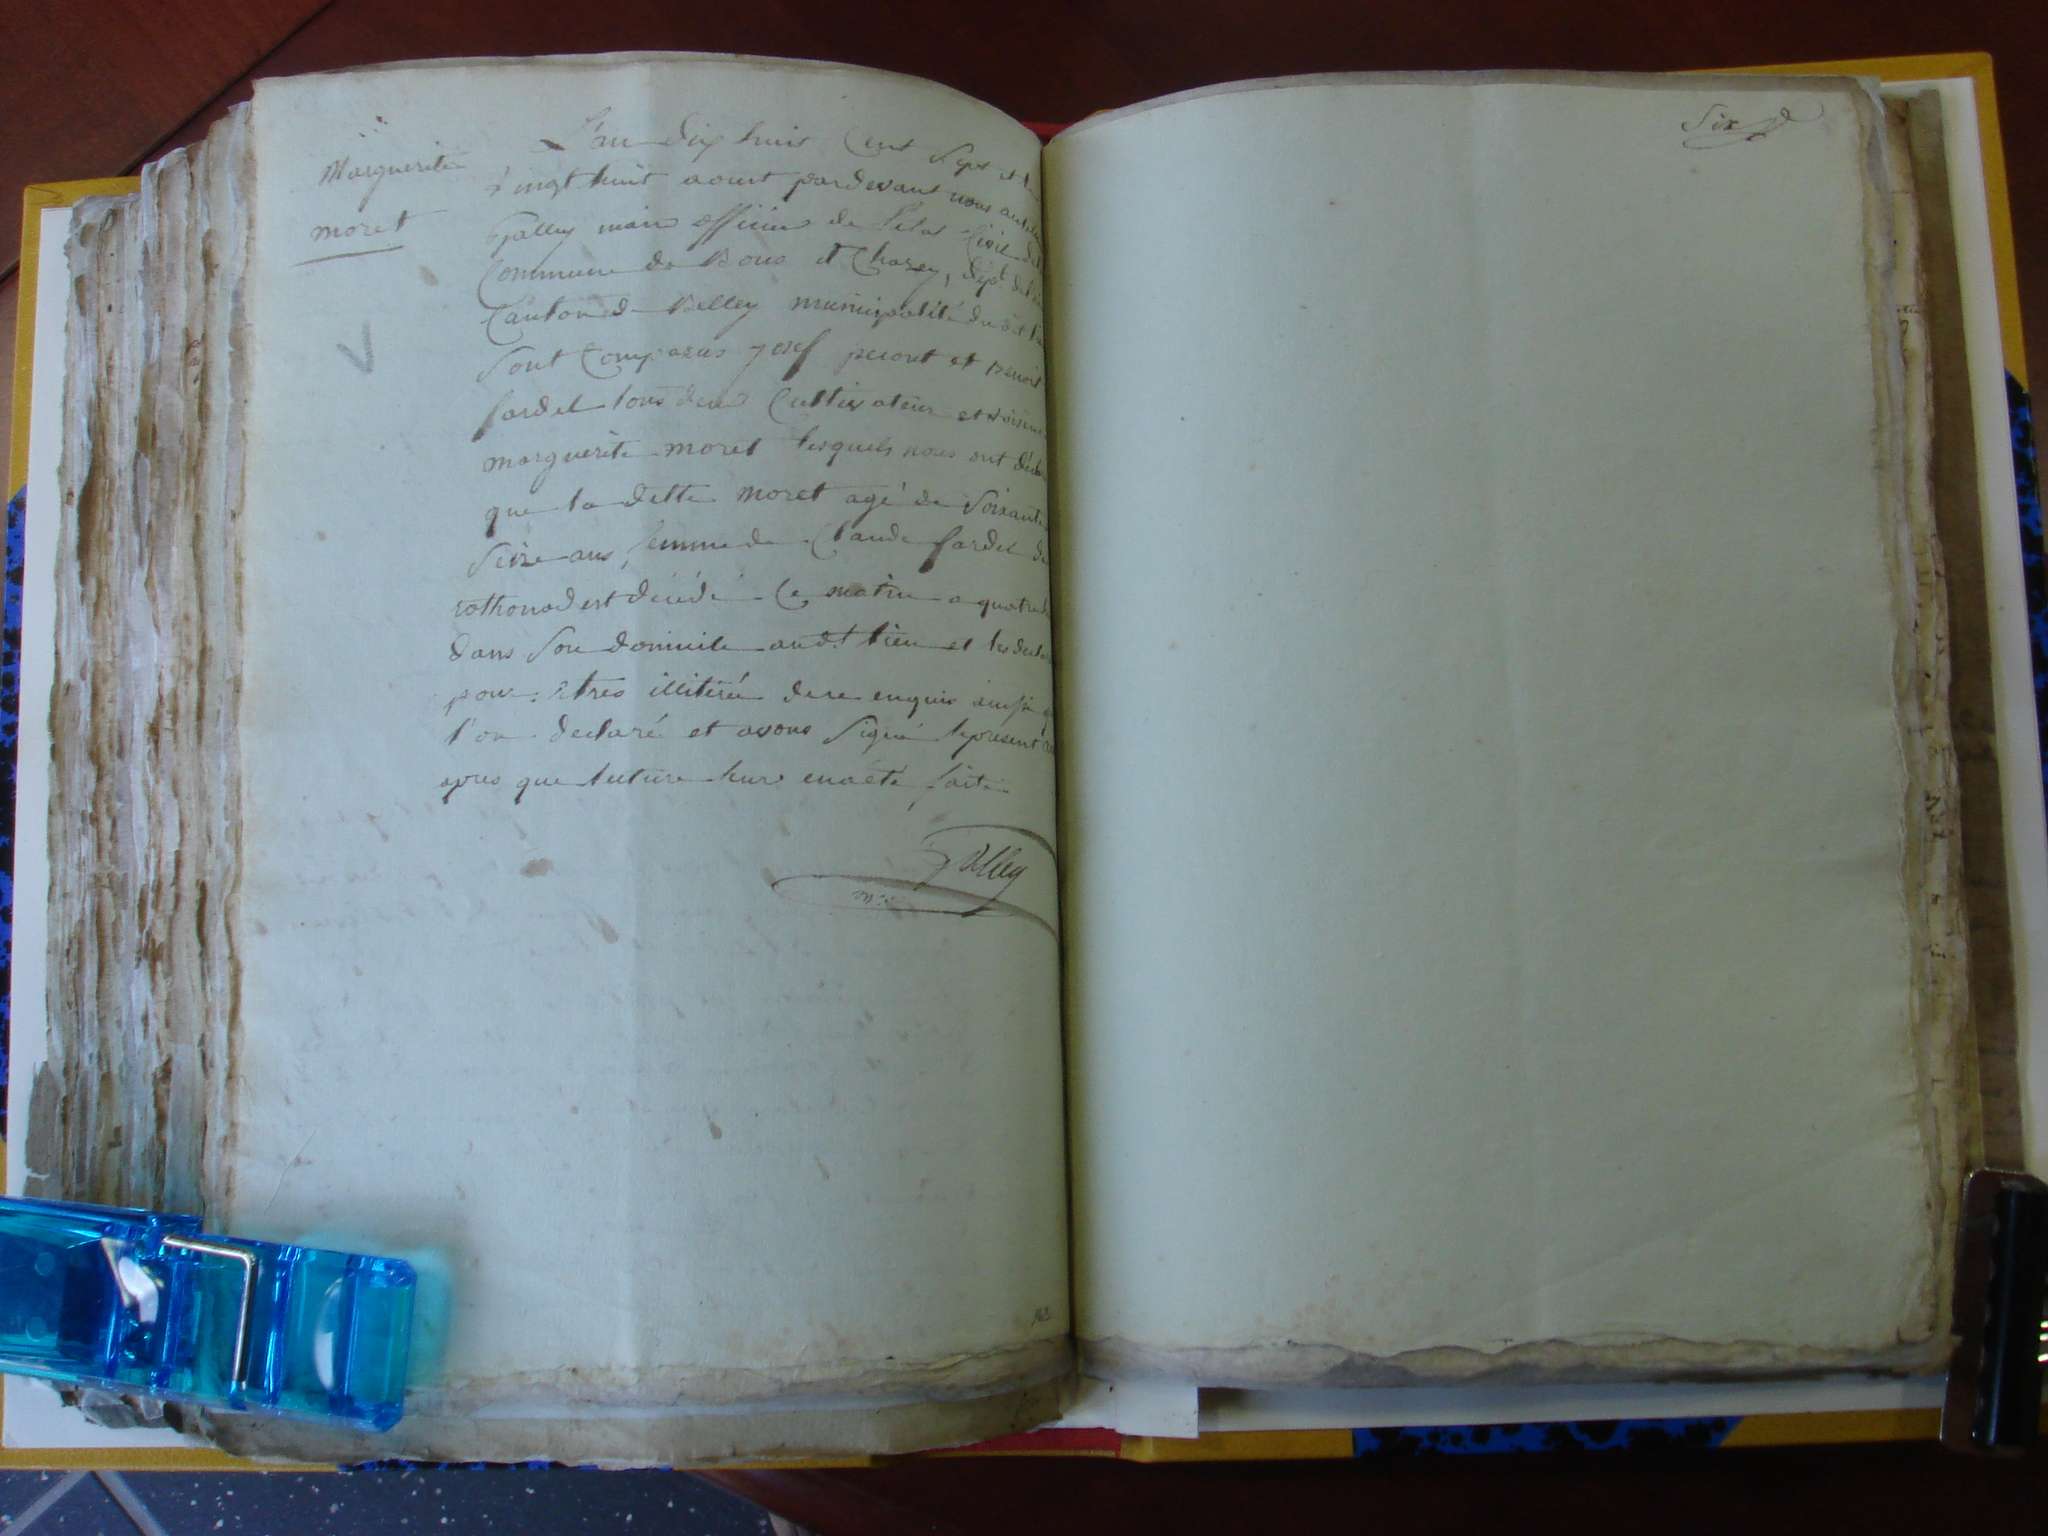 Marguerite
moret
L'an dix huit Cent Sept et le
vingt huit aoust pardevant nous
Galley maire officier de l'etat Civil de
Commune de Bons et Chazey, dépt de
Canton de Belley municipalité dudit
Sont Comparus josef peront et benoit
fardel tous deux Cultivateur et voisin
marguerite moret lesquels nous ont
que la ditte moret agé de Soixante
Seize ans, femme de Claude fardel de
rothonod est décédé Ce matin a quatre
dans Son domicile audt lieu et les
pour etres illitéré de ce enquis ainssi
l'on declaré et avons Signé le present
apres que lecture leur en a été faite
Galley
Six